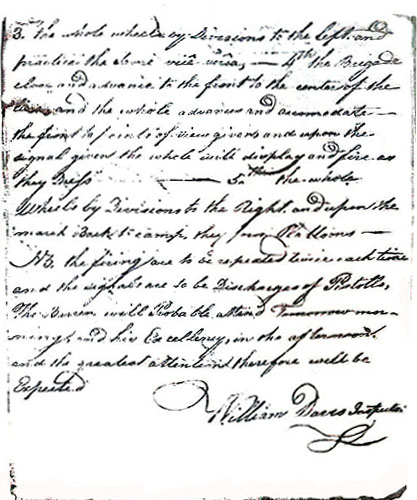 3. the whole wheels by Divisions to the left and
practice the above vice versa, — 4th the Brigade
close and advance to the front to the center of the
line, and the whole advances and acomodate
the front to points of view given and upon the
signal given the whole will display and fire as
they Dress — 5th the whole
Wheels by Divisions to the Right and upon the
march Back to camp, they form Plattoons —
NB. the firing are to be repeated twice each time
and the signals are to be Discharges of Pistolls,
The Barren will Probable attend Tomorrow mor-
ning, and his Excellency, in the afternoon.
and the greatest attention therefore will be
Expected
William Davis Inspector